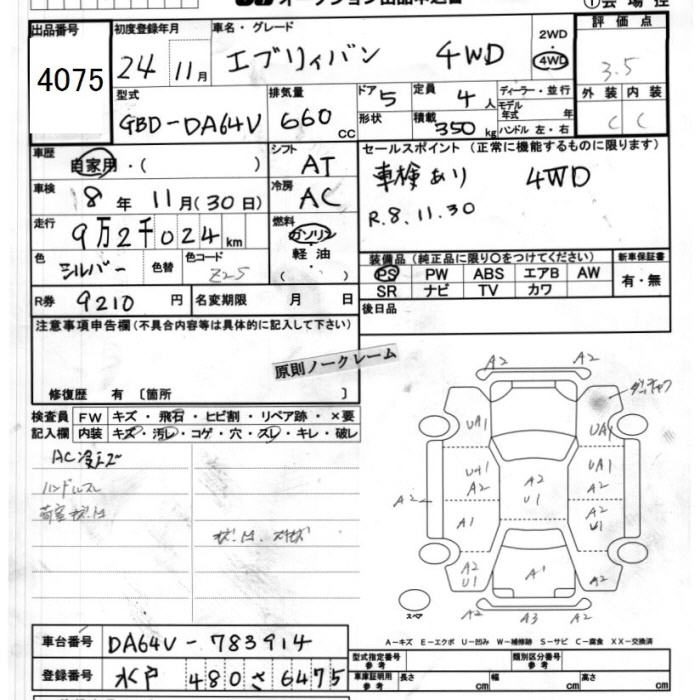 オークション出品申込書
①会場控
出品番号 4075
初度登録年月 24 11月
車名・グレード エブリィバン 4WD
2WD
4WD
評価点 3.5
型式 GBD-DA64V
排気量 660 cc
ドア 5
形状
定員 4人
積載 350 kg
ディーラー・並行
モデル年式 年
ハンドル 左・右
外装 内装
C C
車歴 自家用・( )
シフト AT
セールスポイント(正常に機能するものに限ります)
車検あり 4WD
R.8.11.30
車検 8年 11月(30日)
冷房 AC
走行 9万2千024km
燃料 ガソリン
軽油
( )
色 シルバー
色替
色コード Z2S
装備品(純正品に限り○をつけてください)
PS PW ABS エアB AW
SR ナビ TV カワ
新車保証書
有・無
R券 9210円
名変期限 月 日
後日品
注意事項申告欄(不具合内容等は具体的に記入して下さい)
原則ノークレーム
修復歴 有 〔箇所 〕
検査員記入欄
FW キズ・飛石・ヒビ割・リペア跡・×要
内装 キズ・汚レ・コゲ・穴・スレ・キレ・破レ
ハンドルスレ
A2 A2
UA1 UA1
UA1 A2
A2 U1
UA1 A2
A2 A1
A2 U1
A2 U1
A1
A2
A2 A3 A2
スペア
A-キズ E-エクボ U-凹み W-補修跡 S-サビ C-腐食 XX-交換済
車台番号 DA64V-783914
登録番号 水戸 480 さ 6475
型式指定番号 参考
類別区分番号 参考
車庫証明用 参考
長さ cm
幅 cm
高さ cm